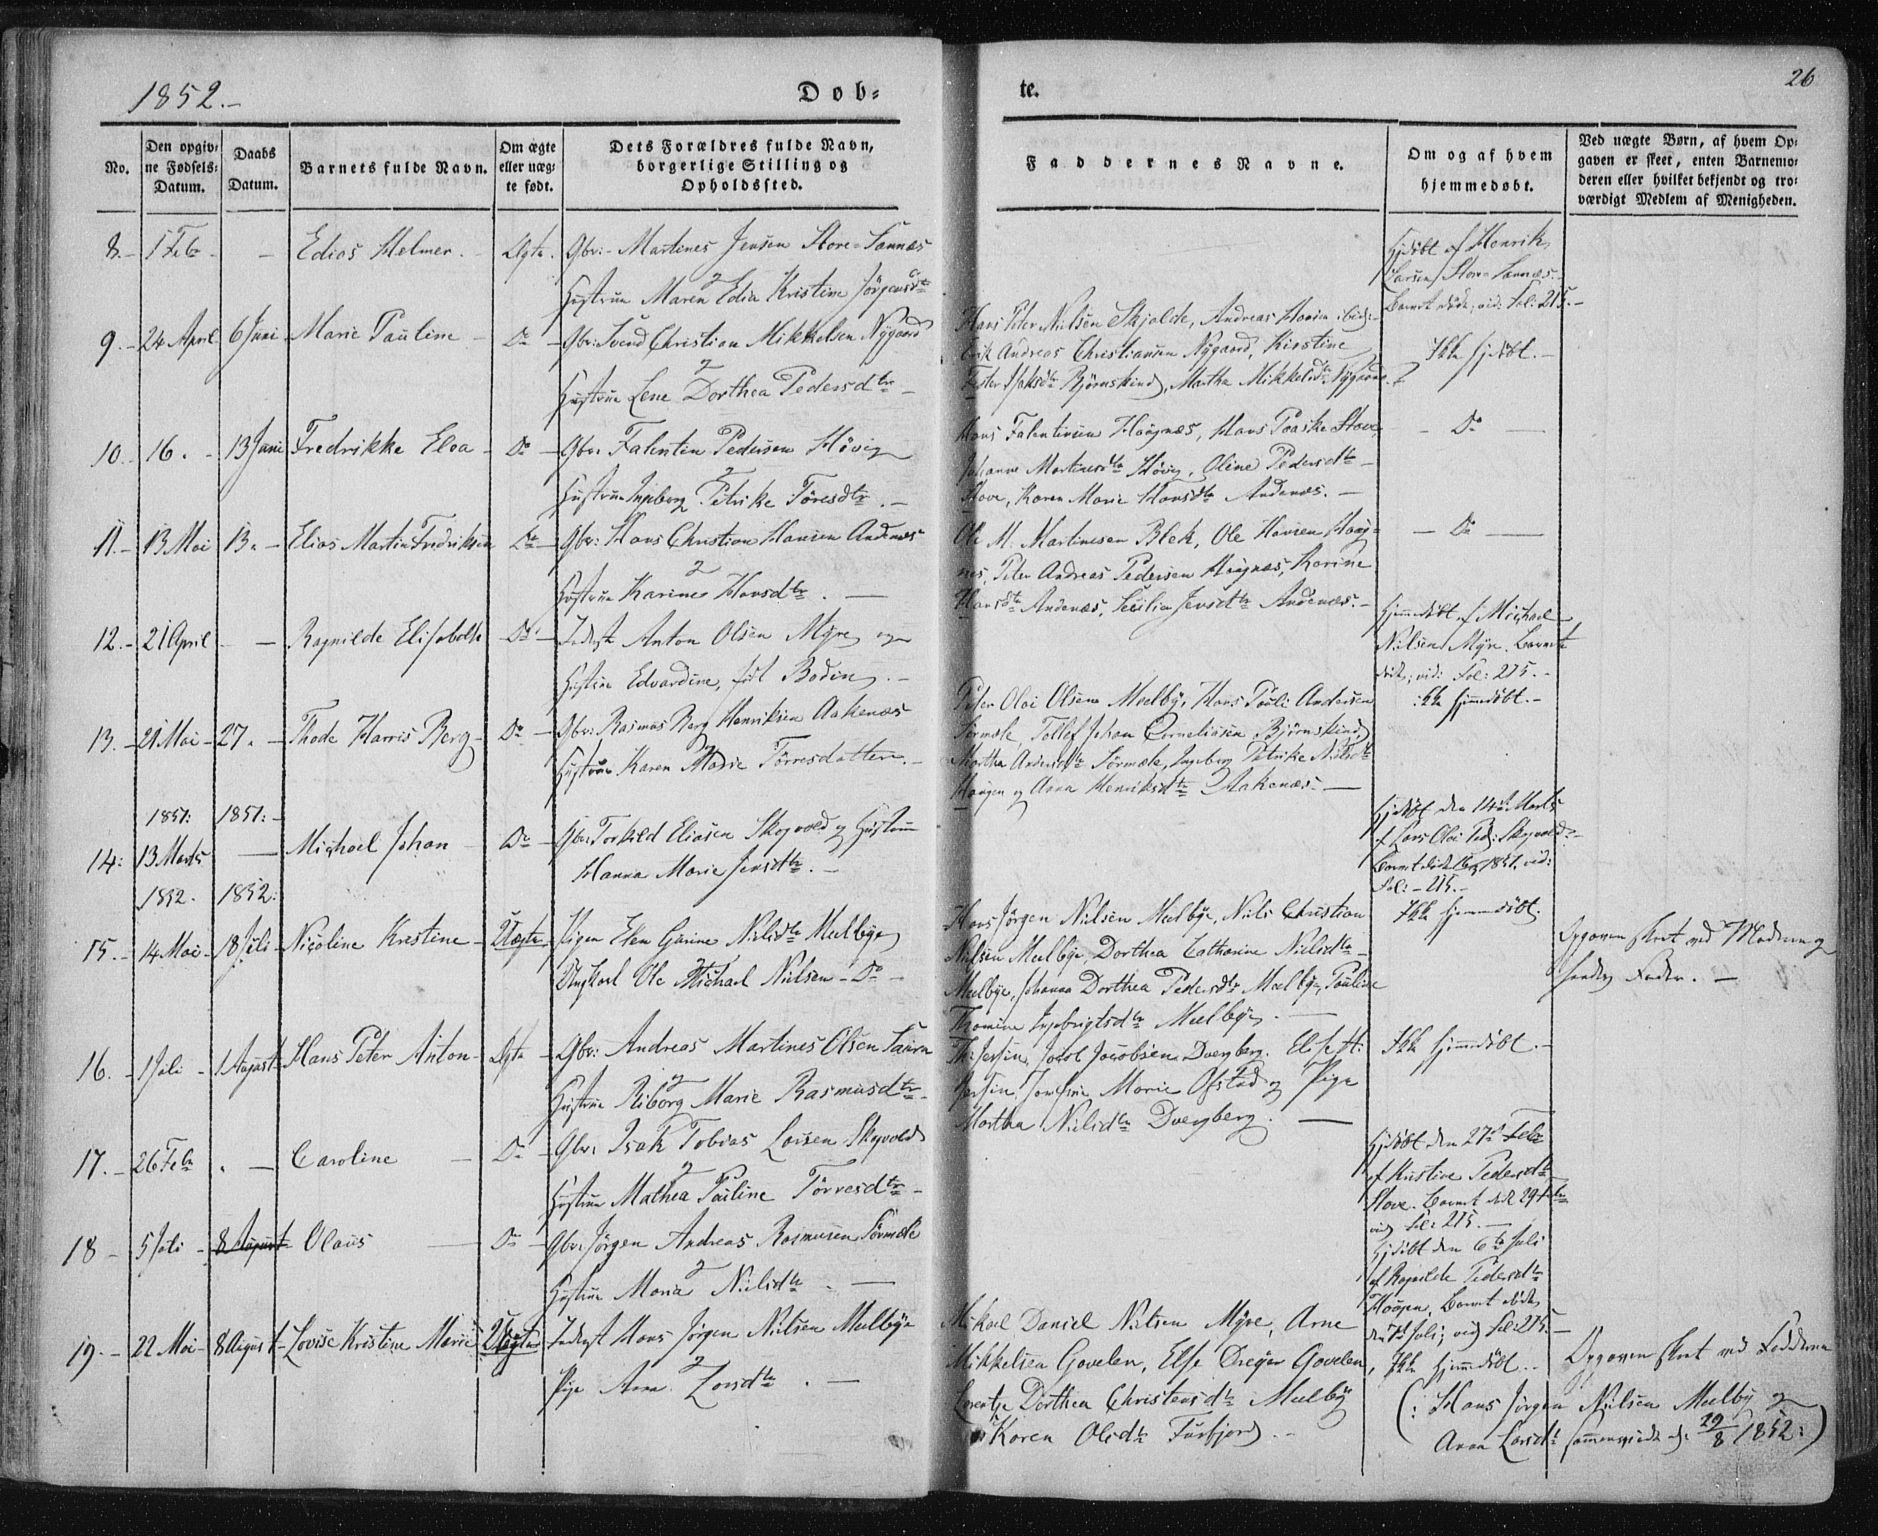 1852.-
Dob-
te.
26
No.
Den opgivne Fødsels-Datum.
Daabs Datum.
Barnets fulde Navn.
Om ægte eller uægte født.
Dets Forældres fulde Navn, borgerlige Stilling og Opholdssted.
Faddernes Navne.
Om og af hvem hjemmedøbt.
Ved uægte Børn, af hvem Opgaven er skeet, enten Barnemoderen eller hvilket bekjendt og troværdigt Medlem af Menigheden.
8.- 1 Feb - Edias Helmer. - Ægte. Gbr:- Martines Jensen Store-Sannæs
Hustrue Maren Edia Kristine Jörgensdtr
Hjdöbt af Henrik
Larsen Store Sannæs.
Barnet döde, vid: Fol: 215.-
9.- 24 April 6 Juni Marie Pauline - Do - Gbr: Svend Christian Mikkelsen Nygaard
Hustrue Lene Dorthea Pedersdtr -
Hans Peter Nielsen Skjolde, Andreas Hansen
Erik Andreas Christiansen Nygaard, Kirstine
Bjørnskind, Martha Mikkelsdtr Nygaard.
Ikke hjdöbt.-
10.- 16. - 13 Juni Fredrikke Elea - Do - Gbr: Falentin Pedersen Høvig
Hustrue Ingborg Petrike Töresdtr. -
Hans Falentinsen Haagnæs, Hans Paaske Stave,
Johanne Martinesdtr Høvig, Oline Pedersdtr
Stave, Karen Marie Hansdtr Andenæs. -
- Do -
11.- 13 Mai 13. - Elias Martin Fredriksen Do - Gbr: Hans Christian Hansen Andenæs
Hustrue Karine Hansdtr. -
Ole M. Martinesen Blek, Ole Hansen Haag-
næs, Peter Andreas Pedersen Haagnæs, Karine
Hansdtr Andenæs, Cecilia Jensdtr Andenæs.-
- Do -
12.- 21 April - - Ragnilde Elisabeth Do - Inderst Anton Olsen Myre og
Hustrue Edvardine, föd Boding.-
Hjemmedöbt af Michael
Nilsen Myre. Barnet
död, vid: Fol: 215.-
13.- 21 Mai - 27. - Thode Harris Berg - Do - Gbr: Rasmus Berg Henriksen Aakenæs
Hustrue Karen Marie Törresdatter.-
Peter Olai Olsen Mælby, Hans Pauli Andersen
Sörmele, Tollef Johan Corneliusen Bjørnskind,
Martha Andersdtr Sörmele, Ingeborg Petrike Nilsdtr
Haugen og Anna Henriksdtr Aakenæs.-
Ikke hjemmdöbt.-
1851: 1851:-
14: 13 Marts - Michael Johan - Do - Gbr: Torkild Eliasen Skogvold og Hustrue
Hanna Marie Jensdtr. -
Hjdöbt den 14d Marts
af Lars Olai Ped: Skogvold.-
Barnet döde 1851, vid:
Fol: - 215.-
1852. 1852:
15.- 14 Mai - 18 Juli - Nicoline Kristine - Uægte - Pigen Elen Gurine Nielsdtr Mælbye
Ungkarl Ole Michael Nielsen - Do -
Hans Jörgen Nielsen Mælbye, Niels Christian
Nielsen Mælbye, Dorthea Catharine Nielsdtr
Mælbye, Johanna Dorthea Pedersdtr Mælbye, Pauline
Thomine Ingebrigtsdtr Mælbye. -
Ikke hjemmdöbt.
Opgaven skeet ved Moderen og
Fader. -
16. - 1 Juli - 1 August - Hans Peter Anton - Ægte - Gbr: Andreas Martines Olsen Saura
Hustrue Riborg Marie Rasmusdtr.
Jacob Jacobsen Dverberg. Eliseth
Josefine Marie Ofstad og Pige
Martha Nielsdtr Dverberg. -
Ikke hjemmdöbt.-
17.- 26 Feb. - Caroline - Do - Gbr: Isak Tobias Larsen Skogvold
Hustrue Mathea Pauline Törresdtr -
Hjdöbt den 27d Feb
af Kristine Pedersdtr
Stave. Barnet död 29
vid Fol: 215.-
18 - 5 Juli - 8 August Olaus - Do - Gbr: Jörgen Andreas Rasmusen Sörmele
Hustrue Maria Nielsdtr. -
Hjdöbt den 6te Juli
af Ragnilde Pedersdtr
Haugen. Barnet döde
den 7d Juli; vid Fol: 215.-
19.- 22 Mai - 8 August - Lovise Kristine Marie Uægte Inderst Hans Jörgen Nielsen Mælbye
Pige Anna Larsdtr. -
Mikael Daniel Nielsen Myre, Arne
Mikkelsen Gavelen, Else Dreyer Gavelen,
Lorentze Dorthea Christensdtr Mælby
og Karen Olsdtr Fiisfjord. -
Ikke hjemmdöbt..
Opgaven skeet ved Fadderne
(: Hans Jörgen Nielsen Mælby og
Anna Larsdtr sammenviede d: 29/8 1852:)